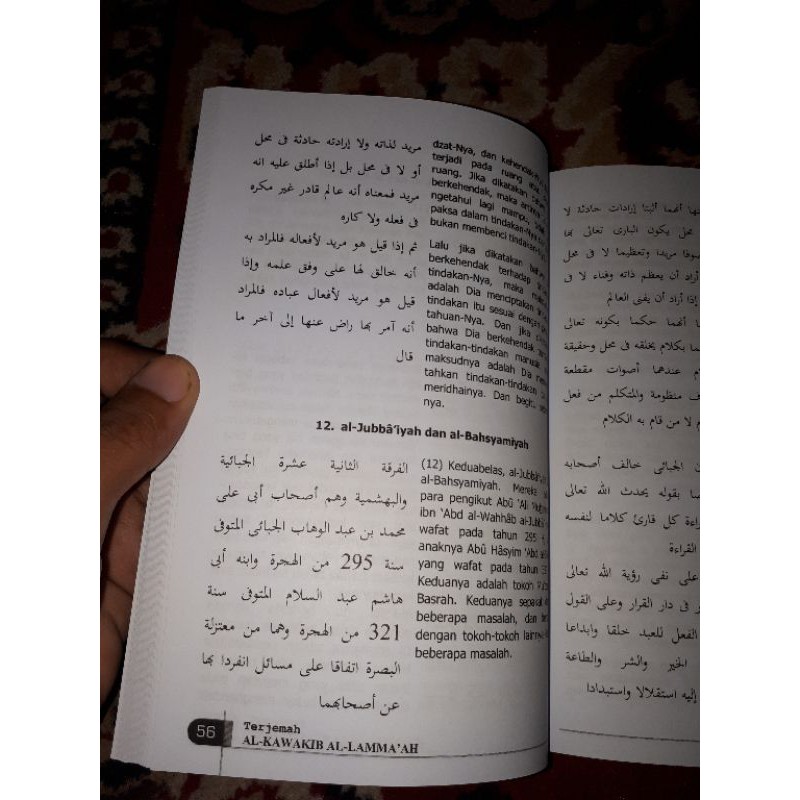 مريد لذاته ولا إرادته حادثة فى محل
أو لا فى محل بل إذا أطلق عليه انه
مريد فمعناه أنه عالم قادر غير مكره
فى فعله ولا كاره
ثم إذا قيل هو مريد لأفعاله فالمراد به
أنه خالق لها على وفق علمه وإذا
قيل هو مريد لأفعال عباده فالمراد
أنه آمر بها راض عنها إلى آخر ما
قال
dzat-Nya, dan
terjadi pada ruang
ruang. Jika dikatakan
berkehendak, maka
ngetahui lagi mampu,
paksa dalam tindakan-Nya
bukan membenci
Lalu jika dikatakan
berkehendak terhadap
tindakan-Nya, maka
adalah Dia menciptakan
tindakan itu sesuai dengan
tahuan-Nya. Dan jika
bahwa Dia berkehendak
tindakan-tindakan
maksudnya adalah Dia
tahkan tindakan-tindakan
meridhainya. Dan
nya.
12. al-Jubbâ’iyah dan al-Bahsyamiyah
الفرقة الثانية عشرة الجبائية
والبهشمية وهم أصحاب أبى على
محمد بن عبد الوهاب الجبائى المتوفى
سنة 295 من الهجرة وابنه أبى
هاشم عبد السلام المتوفى سنة
321 من الهجرة وهما من معتزلة
البصرة اتفاقا على مسائل انفردا بها
عن أصحابهما
(12) Keduabelas,
al-Bahsyamiyah. Mereka
para pengikut Abû ‘Ali
ibn ‘Abd al-Wahhâb
wafat pada tahun 295
anaknya Abû Hâsyim ‘Abd
yang wafat pada tahun
Keduanya adalah tokoh
Basrah. Keduanya
beberapa masalah, dan
dengan tokoh-tokoh
beberapa masalah.
56
Terjemah
AL-KAWAKIB AL-LAMMA’AH
أنهما أثبتا إرادات حادثة لا
محل يكون البارى تعالى بها
مريدا وتعظيما لا فى محل
أراد أن يعظم ذاته وفناء لا فى
إذا أراد أن يفنى العالم
أنهما حكما بكونه تعالى
بكلام يخلقه فى محل وحقيقة
عندهما أصوات مقطعة
منظومة والمتكلم من فعل
لا من قام به الكلام
الجبائى خالف أصحابه
بقوله يحدث الله تعالى
كل قارئ كلاما لنفسه
القراءة
على نفى رؤية الله تعالى
فى دار القرار وعلى القول
الفعل للعبد خلقا وابداعا
الخير والشر والطاعة
إليه استقلالا واستبدادا